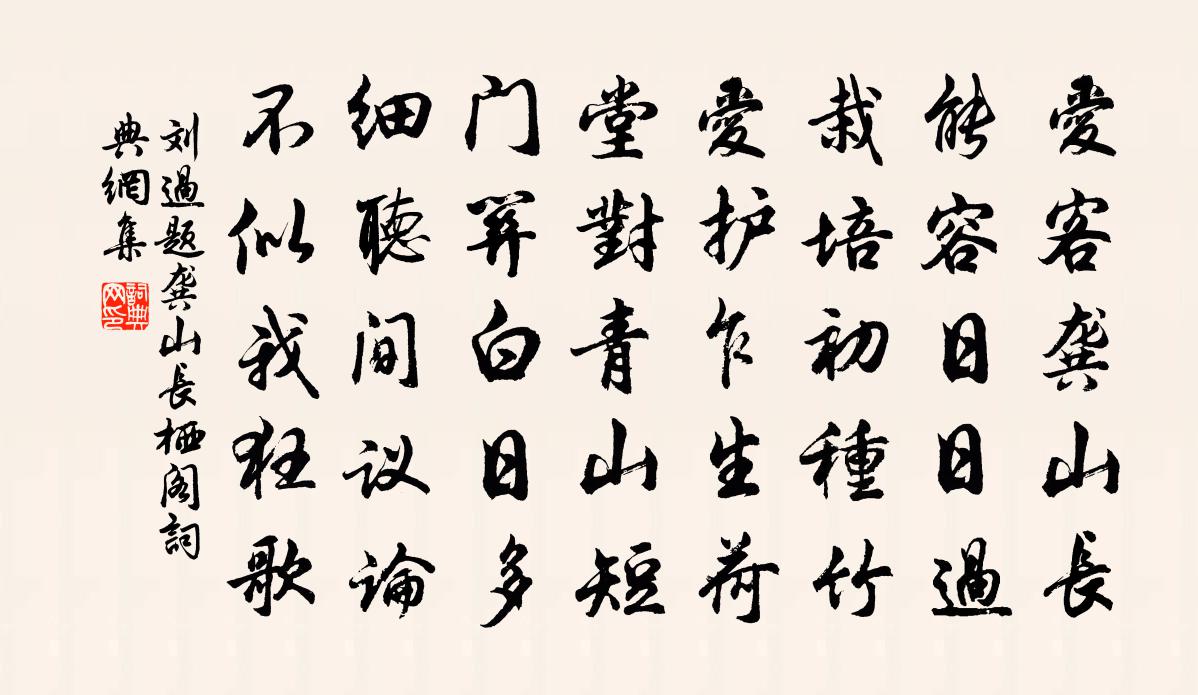 愛客龚山長
能容日日過
栽培初種竹
愛护乍生荷
堂對青山短
门开白日多
细聽间议論
不似我狂歌
刘過题龚山長栖阁詞
典網集
詞典
网印